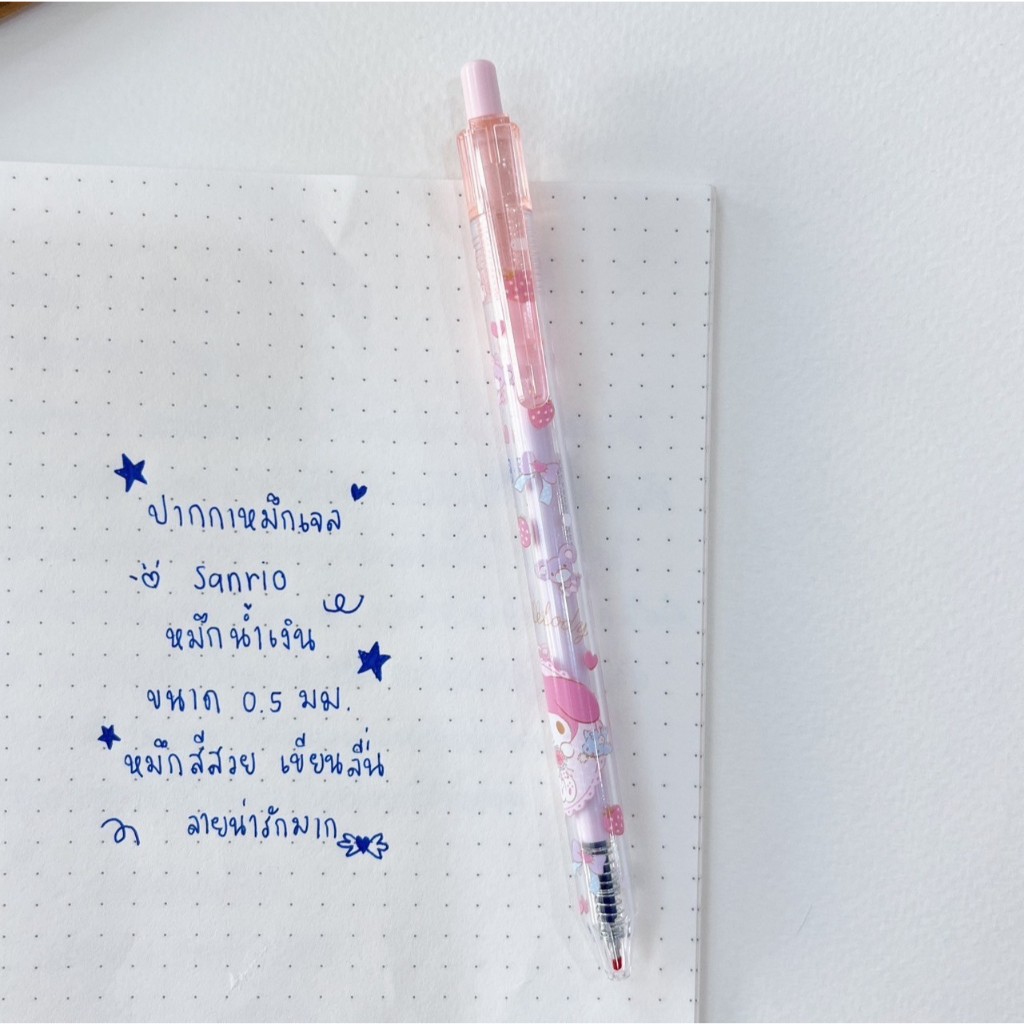 ปากกาหมึกเจล
Sanrio
หมึกน้ำเงิน
ขนาด 0.5 มม.
หมึกสีสวย เขียนลื่น
ลายน่ารักมาก
Melody